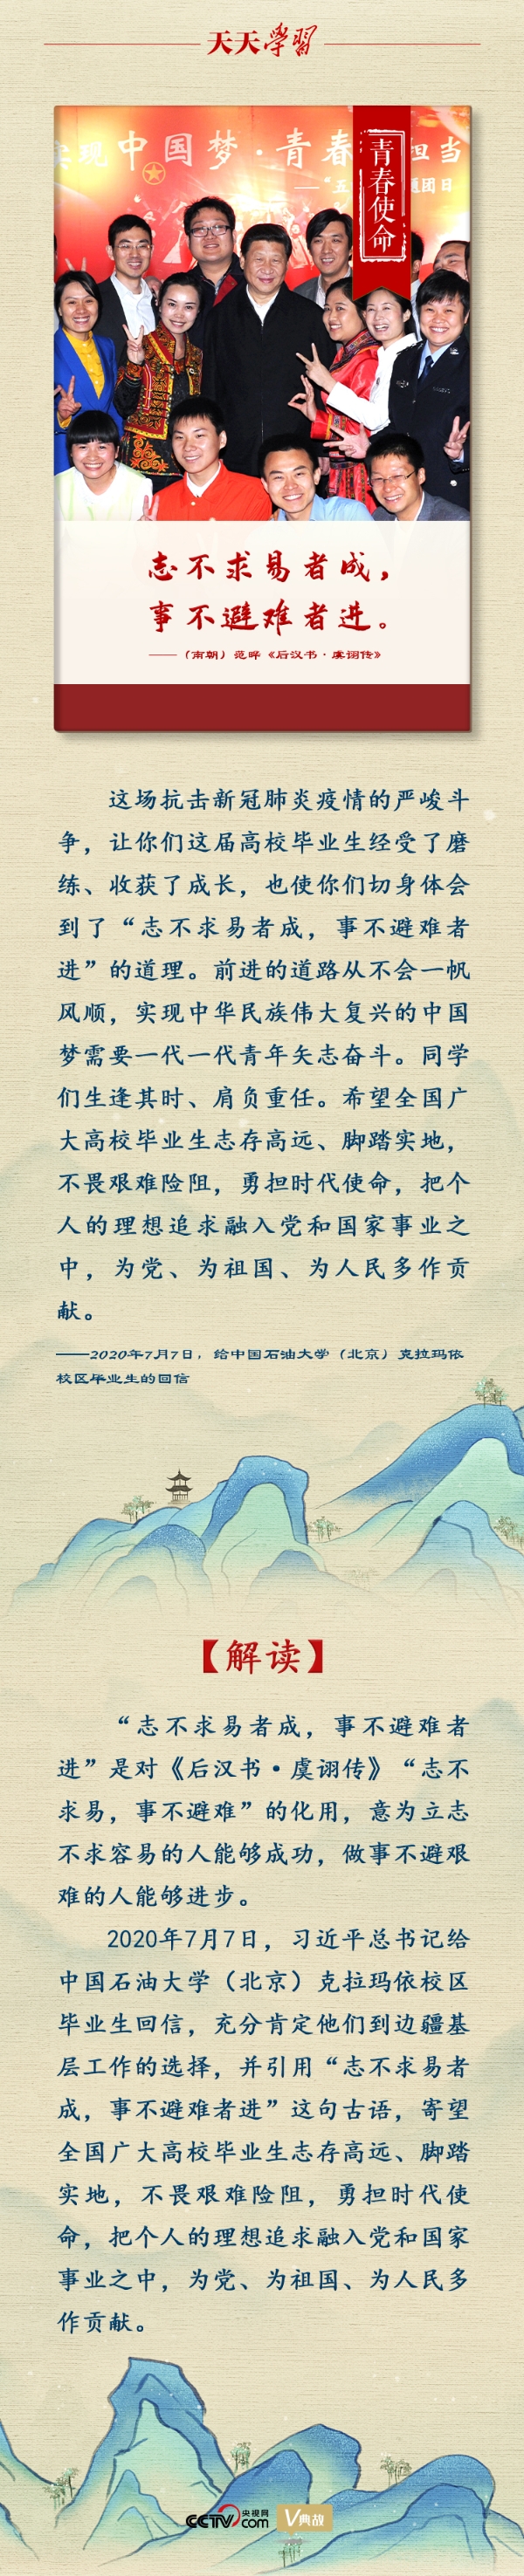 天天學習
实现中国梦·青春 担当
——“五 题团日
青春使命
志不求易者成，
事不避难者进。
——（南朝）范晔《后汉书·虞诩传》
这场抗击新冠肺炎疫情的严峻斗
争，让你们这届高校毕业生经受了磨
练、收获了成长，也使你们切身体会
到了“志不求易者成，事不避难者
进”的道理。前进的道路从不会一帆
风顺，实现中华民族伟大复兴的中国
梦需要一代一代青年矢志奋斗。同学
们生逢其时、肩负重任。希望全国广
大高校毕业生志存高远、脚踏实地，
不畏艰难险阻，勇担时代使命，把个
人的理想追求融入党和国家事业之
中，为党、为祖国、为人民多作贡
献。
——2020年7月7日，给中国石油大学（北京）克拉玛依
校区毕业生的回信
【解读】
“志不求易者成，事不避难者
进”是对《后汉书·虞诩传》“志不
求易，事不避难”的化用，意为立志
不求容易的人能够成功，做事不避艰
难的人能够进步。
2020年7月7日，习近平总书记给
中国石油大学（北京）克拉玛依校区
毕业生回信，充分肯定他们到边疆基
层工作的选择，并引用“志不求易者
成，事不避难者进”这句古语，寄望
全国广大高校毕业生志存高远、脚踏
实地，不畏艰难险阻，勇担时代使
命，把个人的理想追求融入党和国家
事业之中，为党、为祖国、为人民多
作贡献。
CCTV.com 央视网 V典故